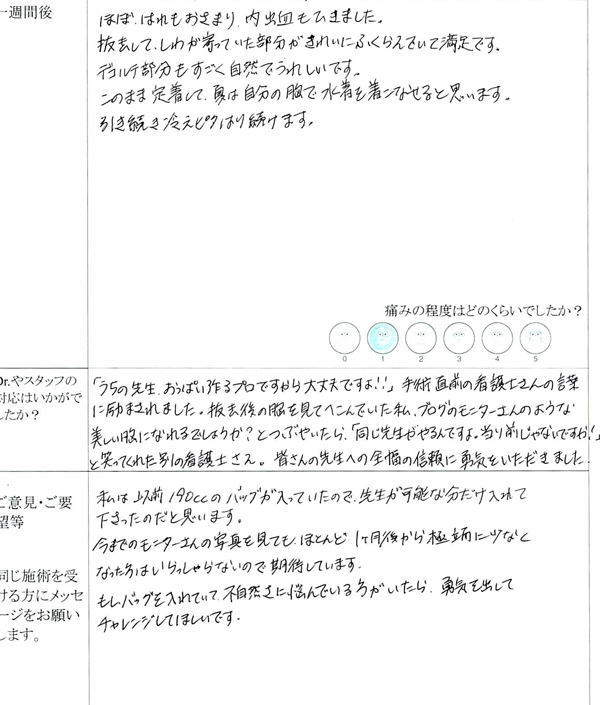 一週間後
ほぼ、はれもおさまり、内出血もひきました。
抜去して、しわが寄っていた部分がきれいにふくらんでいて満足です。
デコルテ部分もすごく自然でうれしいです。
このまま定着して、夏は自分の胸で水着を着こなせると思います。
引き続き冷えピタはり続けます。
痛みの程度はどのくらいでしたか？
0 1 2 3 4 5
Dr.やスタッフの
対応はいかがで
したか？
「うちの先生、おっぱい作るプロですから大丈夫ですよ!!」手術直前の看護士さんの言葉
に励まされました。抜去後の胸を見てへこんでいた私、ブログのモニターさんのような
美しい胸になれるでしょうか？とつぶやいたら、「同じ先生がやるんですよ。当り前じゃないですか!」
と笑ってくれた別の看護士さん。皆さんの先生への全幅の信頼に勇気をいただきました
ご意見・ご要
望等
同じ施術を受
ける方にメッセ
ージをお願い
します。
私は以前190ccのバッグが入っていたので、先生が可能な分だけ入れて
下さったのだと思います。
今までのモニターさんの写真を見ても、ほとんど1ヶ月後から極端に少なく
なった方はいらっしゃらないので期待しています。
もしバッグを入れていて、不自然さに悩んでいる方がいたら、勇気を出して
チャレンジしてほしいです。